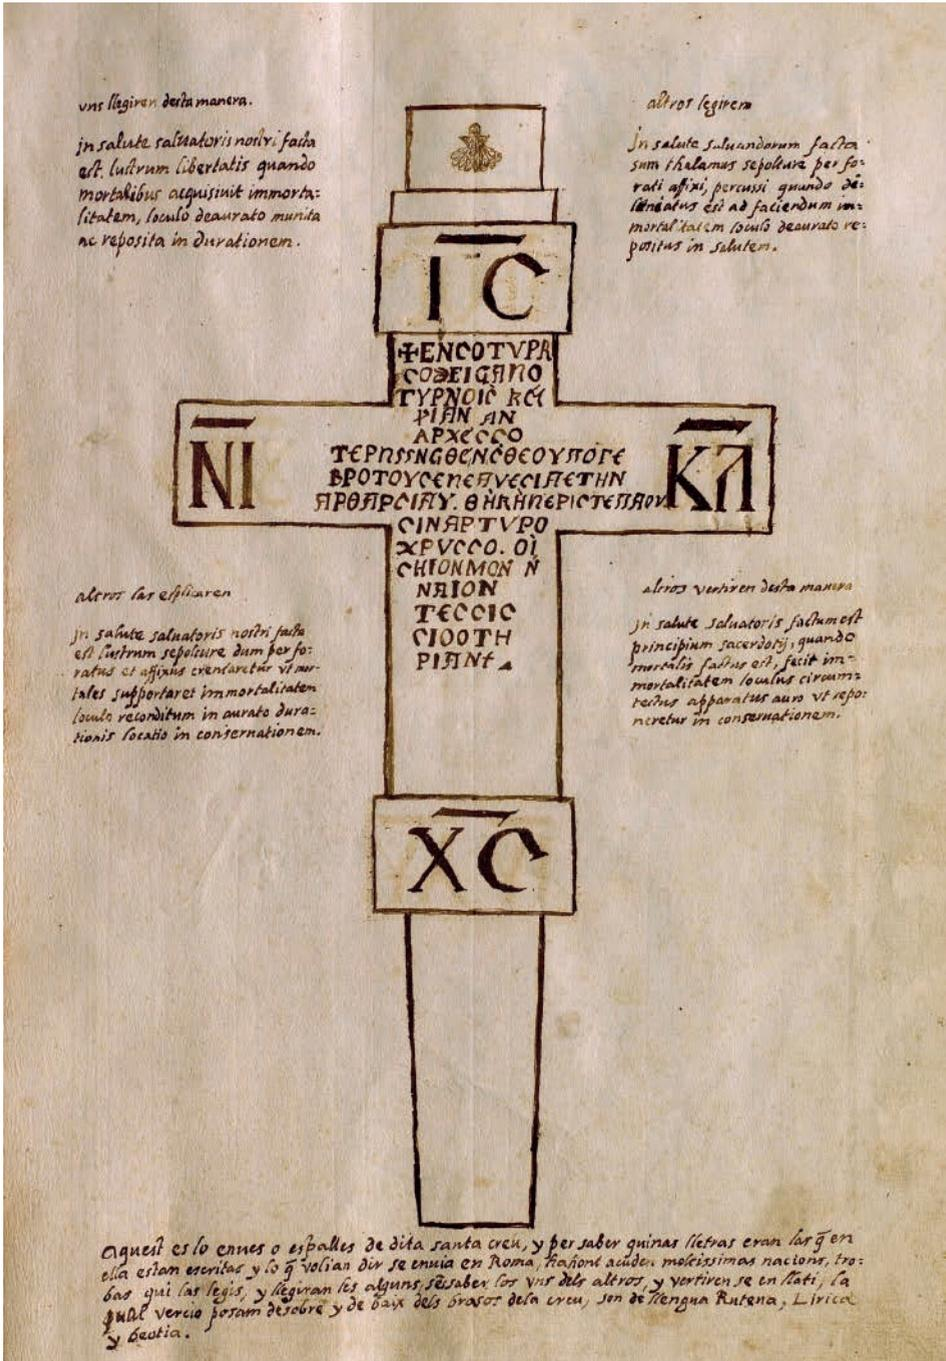 vns llegiren desta manera.
jn salute saluatoris nostri facta
est. lustrum libertatis quando
mortalibus acquisiuit immorta=
litatem, loculo deaurato munita
ac reposita in durationem.
altros legirem
jn salute saluandorum facta
sum thalamus sepolture per fo=
rati affixi, percussi quando de=
est ad faciendum im=
mortalitatem loculo deaurato re=
positus in salutem.
ΙC
✠ENCOTVPA
ΤΥΡΝΟΙC
ΡΙΑΝ ΑΝ
ΑΡΧΕCCO
ΝΙ
ΚΛ
ΒΡΟΤΟΥC
CINAPTVPO
ΧΡVCCO. OI
CHIONMON N
NAION
TECCIC
CIOOTH
ΡΙΑΝ
altros las esplicaren
jn salute saluatoris nostri facta
est lustrum sepolcure dum per fo=
ratus et affixus crentaretur vt mor=
tales supportaret immortalitatem
loculo reconditum in aurato dura=
tionis locatio in conseruationem.
altros vertiren desta manera
jn salute saluatoris factum est
principium sacerdotij, quando
mortalis factus est, fecit im=
mortalitatem loculus circum=
tectus apparatus auro vt repo=
neretur in conseruationem.
ΧC
Aquest es lo enues o espalles de dita santa creu, y per saber quinas lletras eran las q̃ en
ella estan escritas y lo q̃ volian dir se enuia en Roma, ahont acuden moltissimas nacions, tro=
bas qui las legis, y llegiran les alguns, saber los vns dels altros, y vertiren se en llati, la
qual vercio posam desobre y de baix dels brasos dela creu, son de llengua Rutena, Lirica
y beotia.